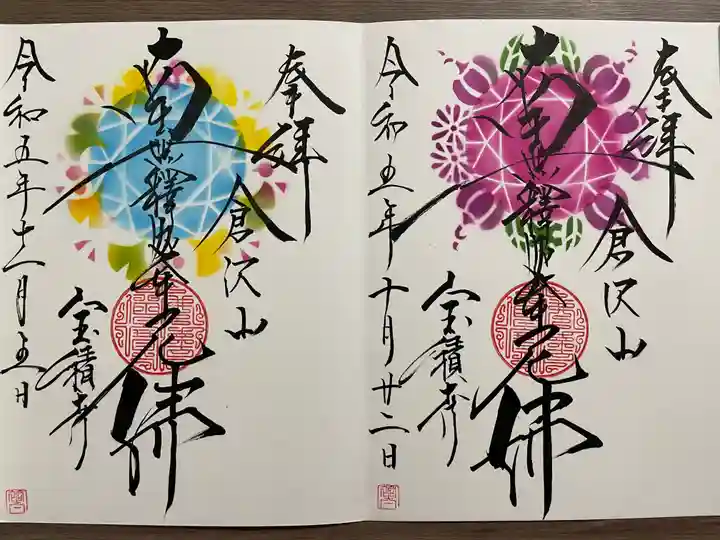 奉拝
倉沢山
南無釋迦牟尼佛
宝積寺
令和五年十月廿二日
奉拝
倉沢山
南無釋迦牟尼佛
宝積寺
令和五年十一月五日